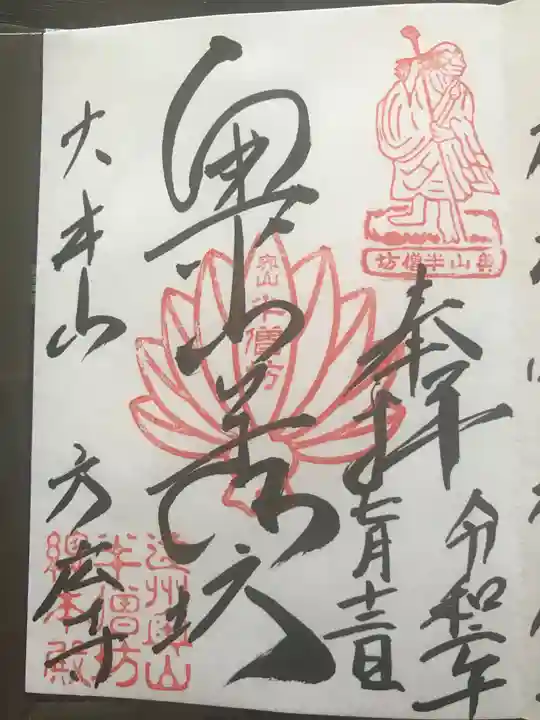 奥山半僧坊
奉拝
令和二年
七月十三日
奥山
半僧坊
奥山半僧坊
大本山
方広寺
遠州奥山
半僧坊
總本殿